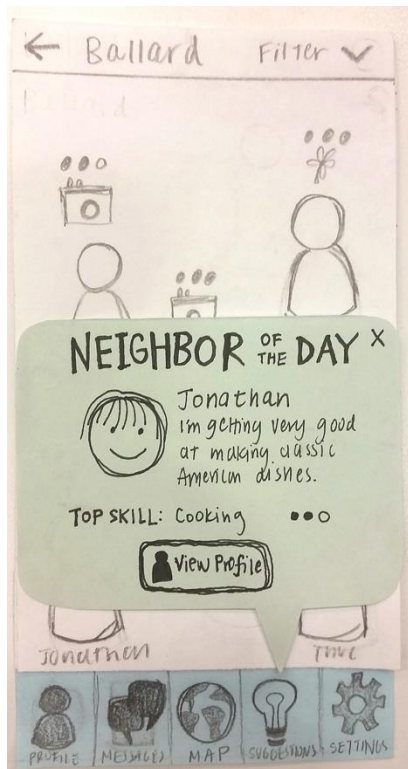 ← Ballard Filter
Ballard
NEIGHBOR OF THE DAY X
Jonathan
I'm getting very good
at making classic
American dishes.
TOP SKILL: Cooking
View Profile
Jonathan
PROFILE MESSAGES MAP SUGGESTIONS SETTINGS